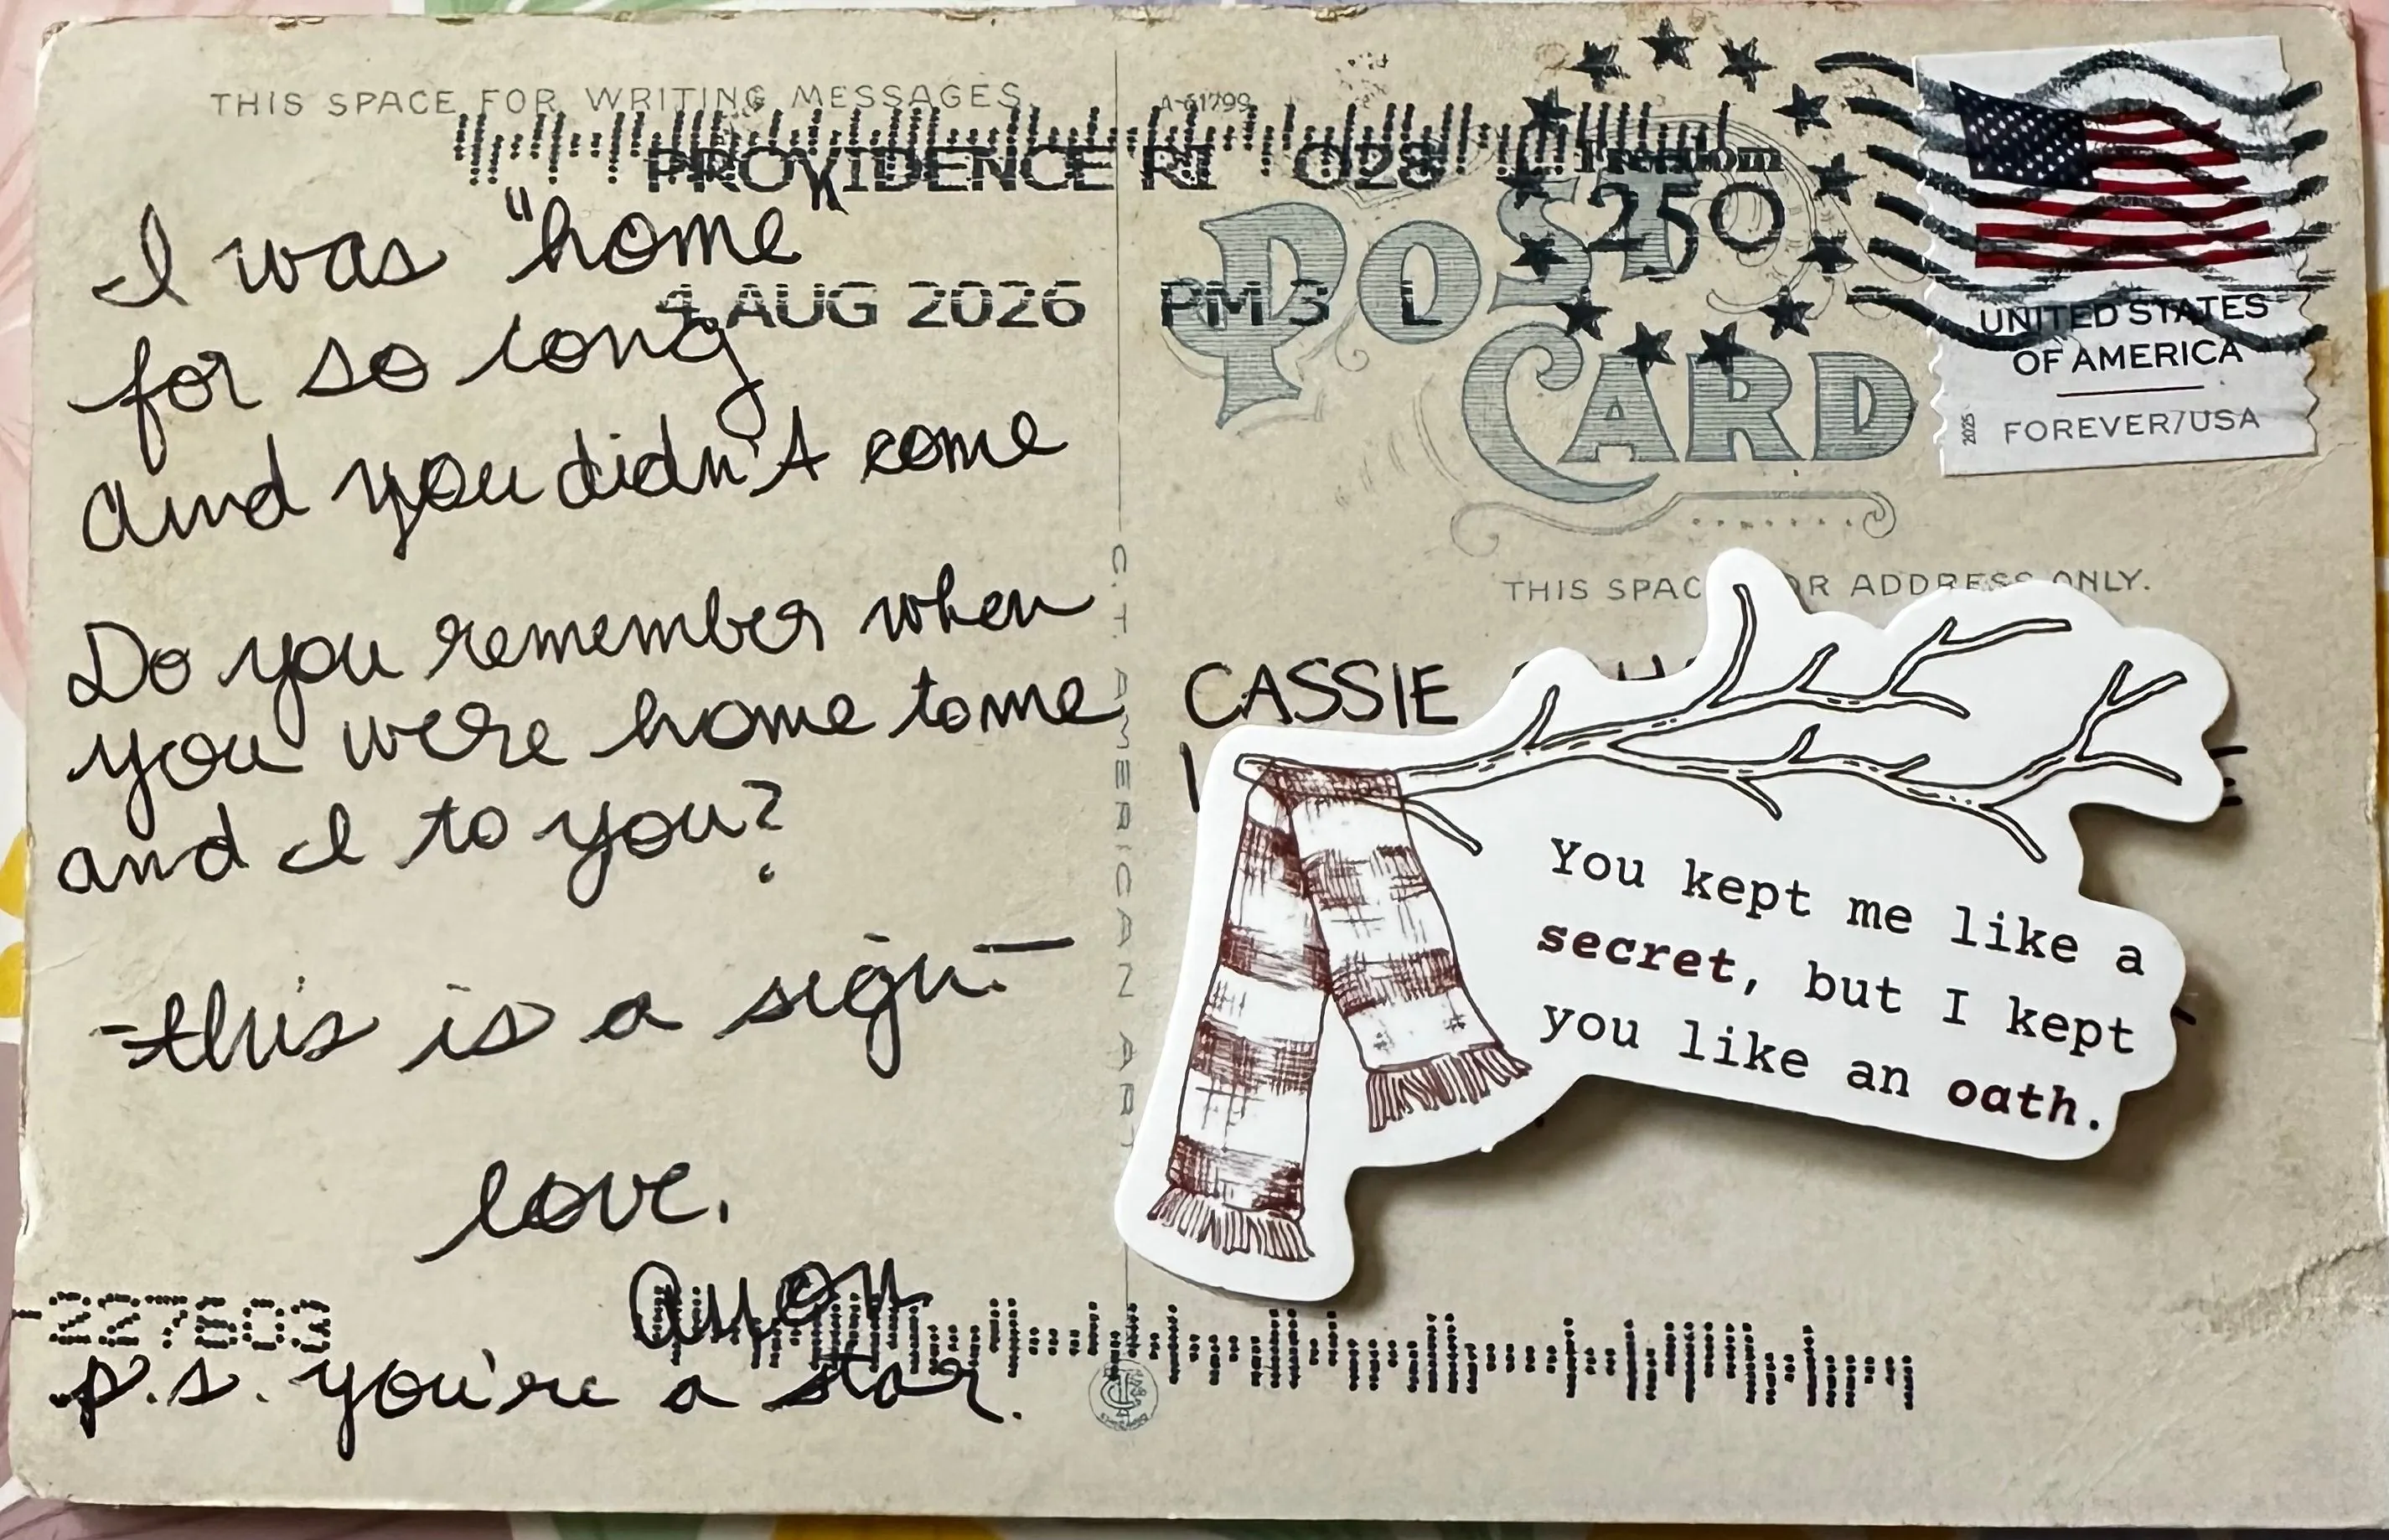 THIS SPACE FOR WRITING MESSAGES.
A-61799
PROVIDENCE RI 028
4 AUG 2026 PM 3 L
Freedom
250
POST
CARD
UNITED STATES
OF AMERICA
2025 FOREVER/USA
I was "home"
for so long
and you didn't come
Do you remember when
you were home to me
and I to you?
-this is a sign.-
love,
p.s. you're a star.
227803
C.T. AMERICAN ART
THIS SPAC OR ADDRESS ONLY.
CASSIE
You kept me like a
secret, but I kept
you like an oath.